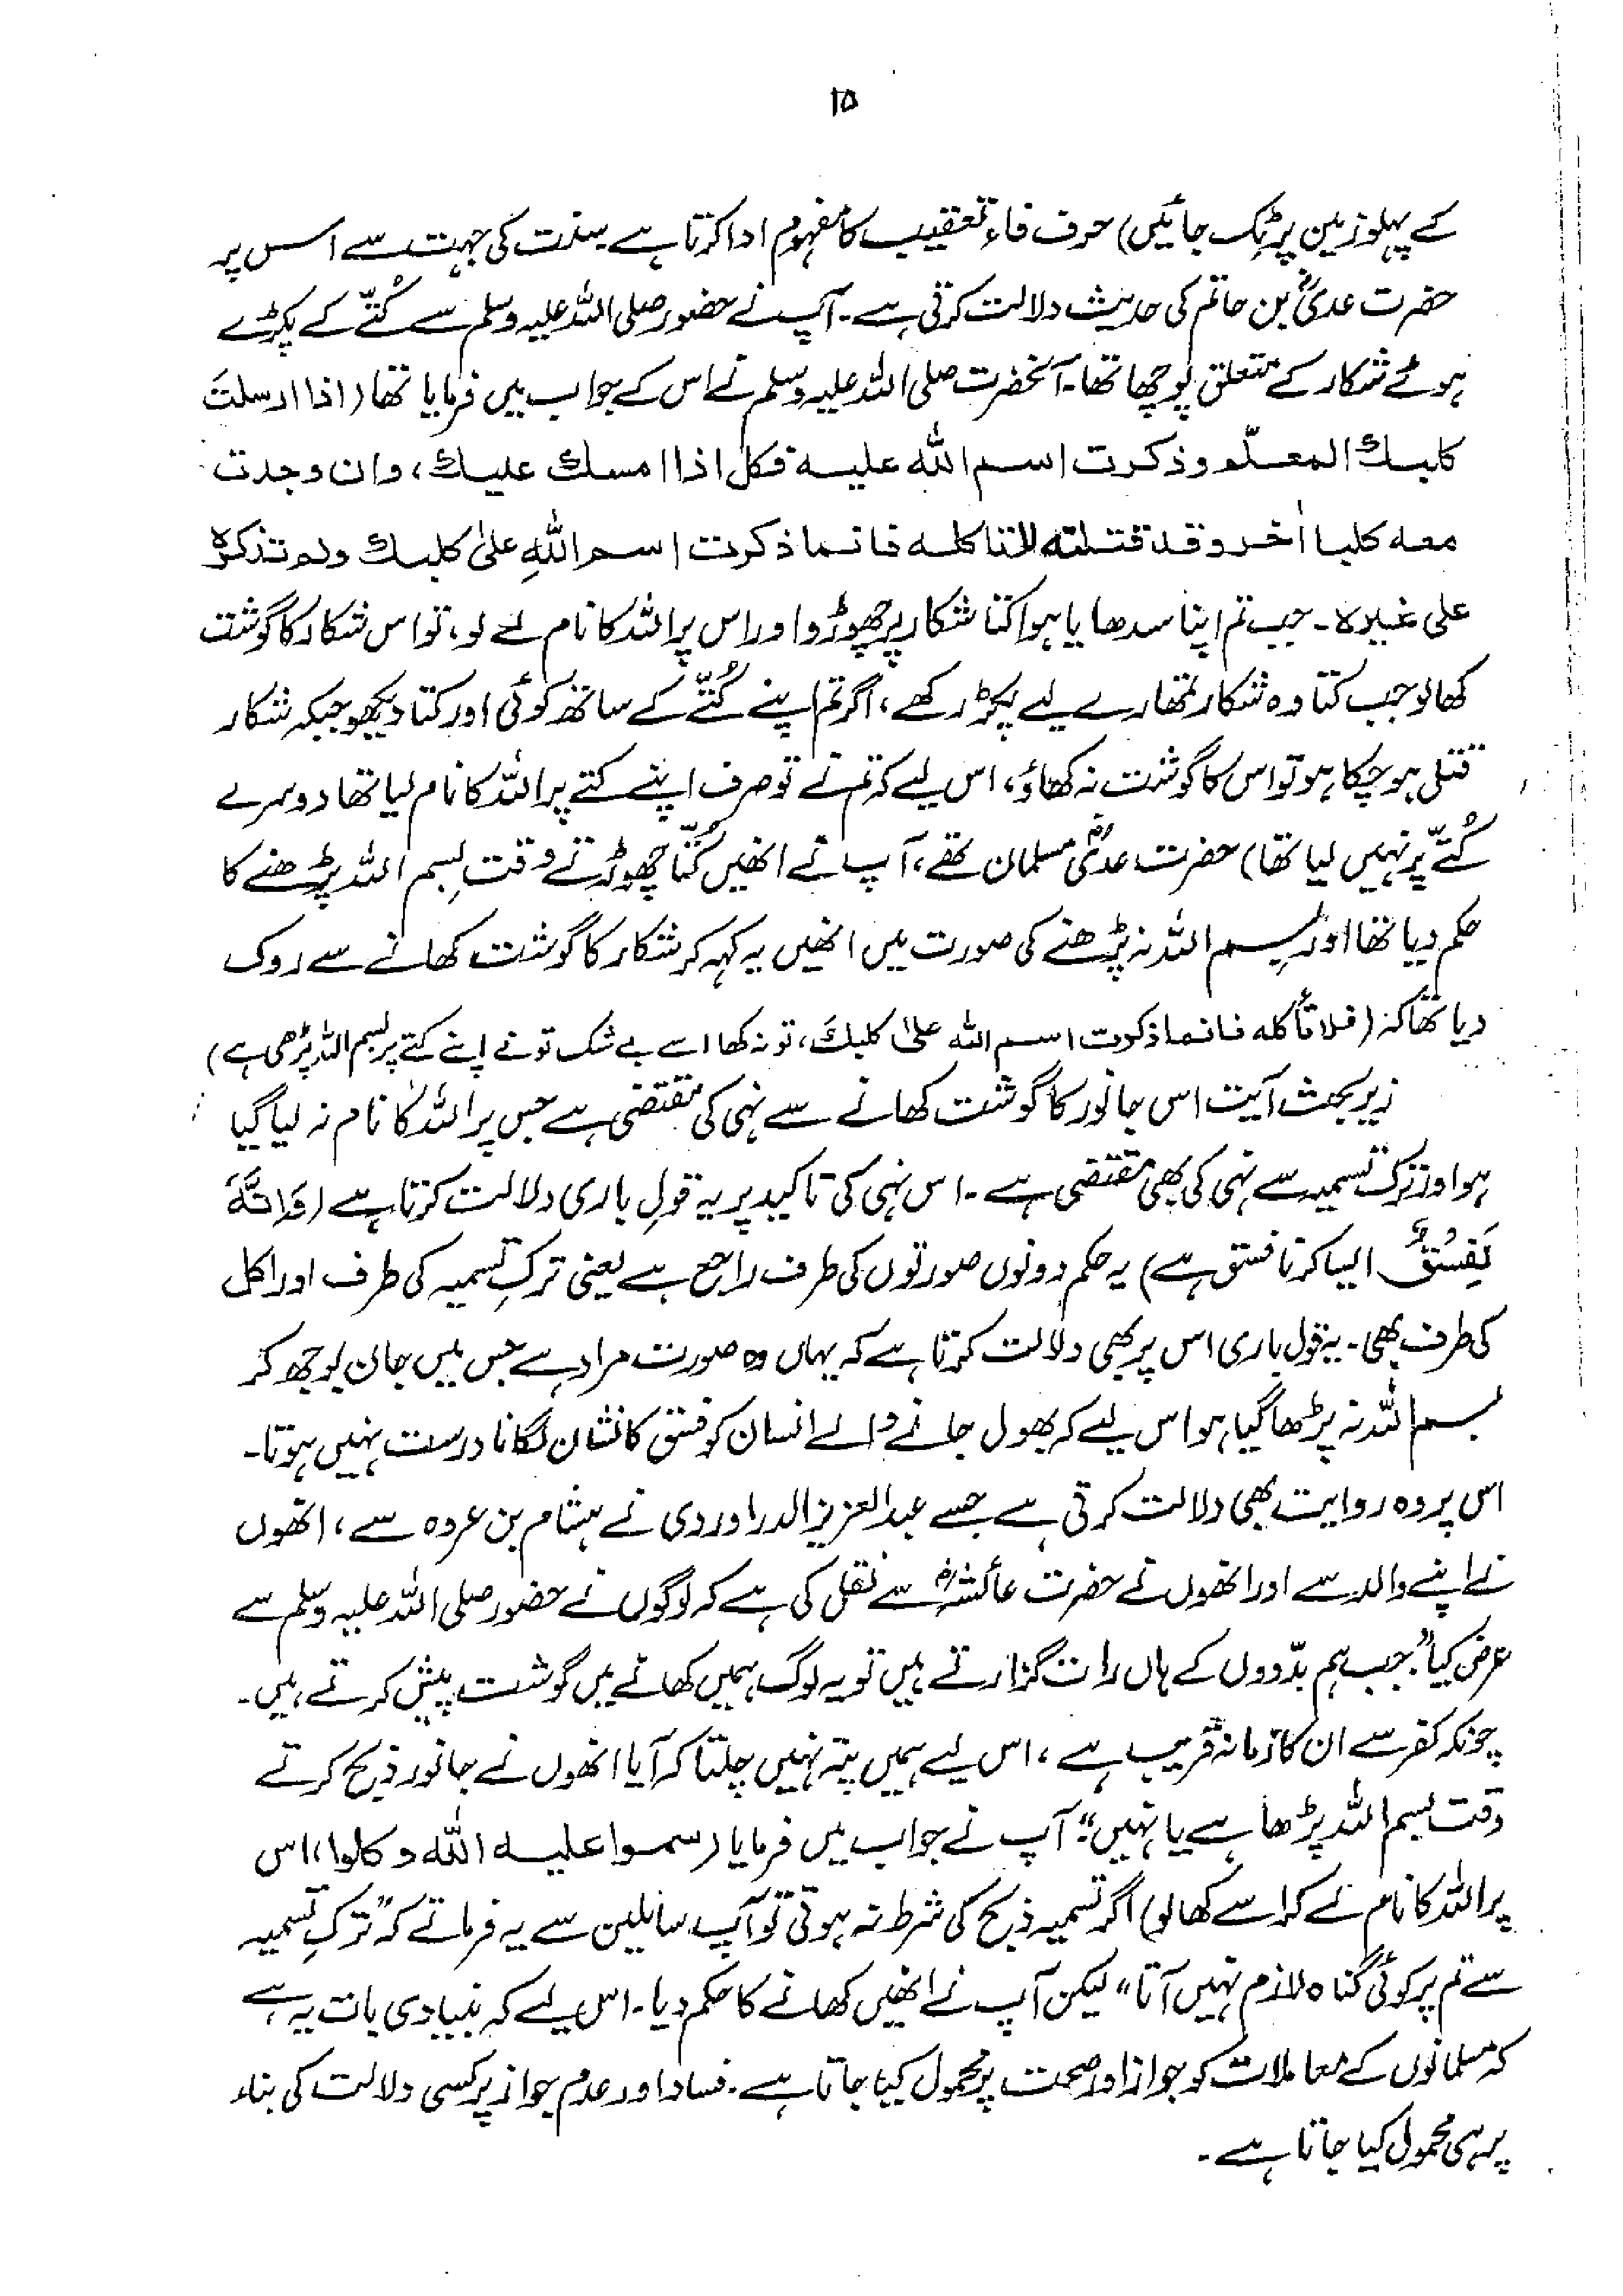 ۱۵
کے پہلو زمین پر ٹک جائیں) حرف فاء تعقیب کا مفہوم ادا کرتا ہے سنت کی جہت سے اس پر
حضرت عدیؓ بن حاتم کی حدیث دلالت کرتی ہے۔ آپ نے حضور صلی اللہ علیہ وسلم سے کُتّے کے پکڑے
ہوئے شکار کے متعلق پوچھا تھا۔ آنحضرت صلی اللہ علیہ وسلم نے اس کے جواب میں فرمایا تھا (اذا ارسلتَ
کلبک المعلّم وذکرت اسم اللہ علیہ فکل اذا امسک علیک، وان وجدت
معہ کلبا اٰخر وقد قتلتہ لاتاکلہ فانما ذکرت اسم اللہِ علیٰ کلبک ولم تذکرہ
علی غیرہ۔ جب تم اپنا سدھایا ہوا کتا شکار پر چھوڑو اور اس پر اللہ کا نام لے لو، تو اس شکار کا گوشت
کھالو جب کتا وہ شکار تمھارے لیے پکڑ رکھے، اگر تم اپنے کُتّے کے ساتھ کوئی اور کتا دیکھو جبکہ شکار
قتل ہو چکا ہو تو اس کا گوشت نہ کھاؤ، اس لیے کہ تم نے تو صرف اپنے کتے پر اللہ کا نام لیا تھا دوسرے
کُتّے پر نہیں لیا تھا) حضرت عدیؓ مسلمان تھے، آپ نے انھیں کُتّا چھوڑتے وقت بسم اللہ پڑھنے کا
حکم دیا تھا اور بسم اللہ نہ پڑھنے کی صورت میں انھیں یہ کہہ کر شکار کا گوشت کھانے سے روک
دیا تھا کہ (فلا تأکلہ فانما ذکرت اسم اللہ علیٰ کلبکَ، تو نہ کھا اسے بے شک تو نے اپنے کتے پر بسم اللہ پڑھی ہے)
زیر بحث آیت اس جانور کا گوشت کھانے سے نہی کی مقتضی ہے جس پر اللہ کا نام نہ لیا گیا
ہو اور ترک تسمیہ سے نہی کی بھی مقتضی ہے۔ اس نہی کی تاکید پر یہ قولِ باری دلالت کرتا ہے (وَاِنَّہٗ
لَفِسْقٌ ایسا کرنا فسق ہے) یہ حکم دونوں صورتوں کی طرف راجع ہے یعنی ترکِ تسمیہ کی طرف اور اکل
کی طرف بھی۔ یہ قول باری اس پر بھی دلالت کرتا ہے کہ یہاں وہ صورت مراد ہے جس میں جان بوجھ کر
بسم اللہ نہ پڑھا گیا ہو اس لیے کہ بھول جانے والے انسان کو فسق کا نشان لگانا درست نہیں ہوتا۔
اس پر وہ روایت بھی دلالت کرتی ہے جسے عبدالعزیز الدراوردی نے ہشام بن عروہ سے، انھوں
نے اپنے والد سے اور انھوں نے حضرت عائشہؓ سے نقل کی ہے کہ لوگوں نے حضور صلی اللہ علیہ وسلم سے
عرض کیا "جب ہم بدّووں کے ہاں رات گزارتے ہیں تو یہ لوگ ہمیں کھانے میں گوشت پیش کرتے ہیں۔
چونکہ کفر سے ان کا زمانہ قریب ہے، اس لیے ہمیں پتہ نہیں چلتا کہ آیا انھوں نے جانور ذبح کرتے
وقت بسم اللہ پڑھا ہے یا نہیں"؟ آپ نے جواب میں فرمایا (سموا علیہ اللہ وکلوا، اس
پر اللہ کا نام لے کر اسے کھالو) اگر تسمیہ ذبح کی شرط نہ ہوتی تو آپ سائلین سے یہ فرماتے کہ "ترکِ تسمیہ
سے تم پر کوئی گناہ لازم نہیں آتا" لیکن آپ نے انھیں کھانے کا حکم دیا۔ اس لیے کہ بنیادی بات یہ ہے
کہ مسلمانوں کے معاملات کو جواز اور صحت پر محمول کیا جاتا ہے۔ فساد اور عدم جواز پر کسی دلالت کی بناء
پر ہی محمول کیا جاتا ہے۔